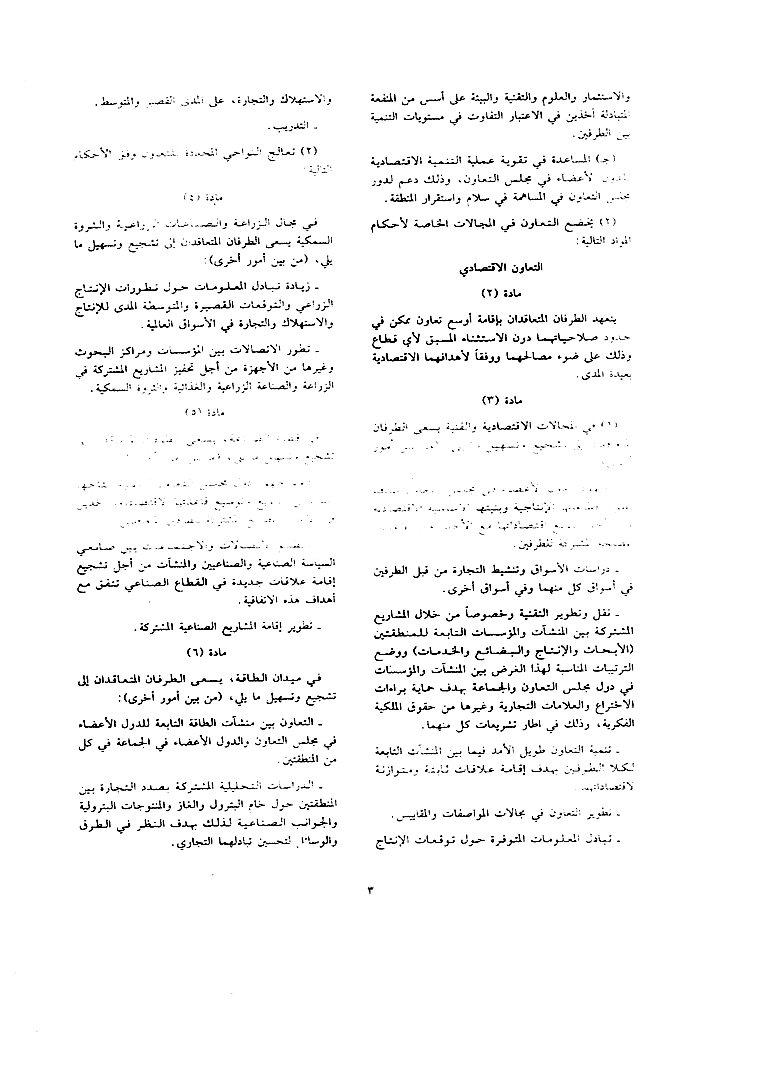 والاستثمار والعلوم والتقنية والبيئة على أسس من المنفعة
المتبادلة أخذين في الاعتبار التفاوت في مستويات التنمية
بين الطرفين.
(جـ) المساعدة في تقوية عملية التنمية الاقتصادية
للدول الأعضاء في مجلس التعاون، وذلك دعم لدور
مجلس التعاون في المساهمة في سلام واستقرار المنطقة.
(٢) يخضع التعاون في المجالات الخاصة لأحكام
المواد التالية:
التعاون الاقتصادي
مادة (٢)
يتعهد الطرفان المتعاقدان بإقامة أوسع تعاون ممكن في
حدود صلاحياتهما دون الاستثناء المسبق لأي قطاع
وذلك على ضوء مصالحهما ووفقاً لأهدافهما الاقتصادية
بعيدة المدى.
مادة (٣)
(١) في المجالات الاقتصادية والفنية يسعى الطرفان
تشجيع وتسهيل أمور
الأعضاء في مجلس
الإنتاجية وبنيتها الأساسية الاقتصادية
اقتصاداتها مع الأخذ
مصلحة مشتركة للطرفين.
ـ دراسات الأسواق وتنشيط التجارة من قبل الطرفين
في أسواق كل منهما وفي أسواق أخرى.
ـ نقل وتطوير التقنية وخصوصاً من خلال المشاريع
المشتركة بين المنشآت والمؤسسات التابعة للمنطقتين
(الأبحاث والإنتاج والبضائع والخدمات) ووضع
الترتيبات المناسبة لهذا الغرض بين المنشآت والمؤسسات
في دول مجلس التعاون والجماعة بهدف حماية براءات
الاختراع والعلامات التجارية وغيرها من حقوق الملكية
الفكرية، وذلك في اطار تشريعات كل منهما.
ـ تنمية التعاون طويل الأمد فيما بين المنشآت التابعة
لكلا الطرفين بهدف إقامة علاقات ثابتة ومتوازنة
لاقتصاداتهما.
ـ تطوير التعاون في مجالات المواصفات والمقاييس.
ـ تبادل المعلومات المتوفرة حول توقعات الإنتاج
والاستهلاك والتجارة، على المدى القصير والمتوسط.
ـ التدريب.
(٢) تعالج النواحي المحددة للتعاون وفق الأحكام
التالية:
مادة (٤)
في مجال الزراعة والصناعات الزراعية والثروة
السمكية يسعى الطرفان المتعاقدان إلى تشجيع وتسهيل ما
يلي، (من بين أمور أخرى):
ـ زيادة تبادل المعلومات حول تطورات الإنتاج
الزراعي والتوقعات القصيرة والمتوسطة المدى للإنتاج
والاستهلاك والتجارة في الأسواق العالمية.
ـ تطور الاتصالات بين المؤسسات ومراكز البحوث
وغيرها من الأجهزة من أجل تحفيز المشاريع المشتركة في
الزراعة والصناعة الزراعية والغذائية والثروة السمكية.
مادة (٥)
في الصناعة، يسعى
تشجيع وتسهيل ما يلي،
مجلس
وتوسيع قاعدتها الاقتصادية،
الاتصالات والاجتماعات بين صانعي
السياسة الصناعية والصناعيين والمنشآت من أجل تشجيع
إقامة علاقات جديدة في القطاع الصناعي تتفق مع
أهداف هذه الاتفاقية.
ـ تطوير إقامة المشاريع الصناعية المشتركة.
مادة (٦)
في ميدان الطاقة، يسعى الطرفان المتعاقدان إلى
تشجيع وتسهيل ما يلي، (من بين أمور أخرى):
ـ التعاون بين منشآت الطاقة التابعة للدول الأعضاء
في مجلس التعاون والدول الأعضاء في الجماعة في كل
من المنطقتين.
ـ الدراسات التحليلية المشتركة بصدد التجارة بين
المنطقتين حول خام البترول والغاز والمنتوجات البترولية
والجوانب الصناعية لذلك بهدف النظر في الطرق
والوسائل لتحسين تبادلهما التجاري.
٣